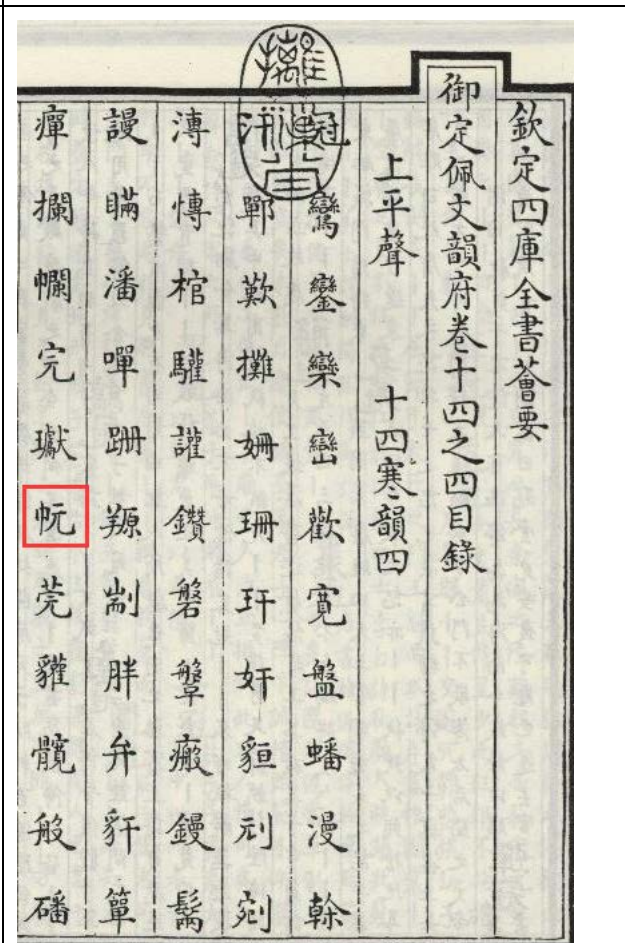 欽定四庫全書薈要
御定佩文韻府卷十四之四目錄
上平聲 十四寒韻四
冠鸞鑾欒巒歡寬盤蟠漫幹
汗鄲歎攤姍珊玕奸貆刓剜
漙慱棺驩讙鑽磐鞶瘢鏝鬗
謾瞞潘嘽跚羱剬胖弁豻簞
癉攔幱完瓛㡋莞貛髖般磻